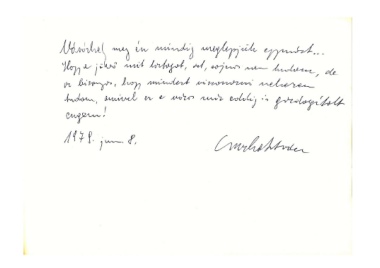 Vásárhely meg én mindig meglepjük egymást...
Hogy a jövő mit tartogat, azt sajnos nem tudom, de
az bizonyos, hogy mindazt viszonozni nehezen
tudom, amivel ez a város már eddig is gazdagított
engem!
1979. jun 8.